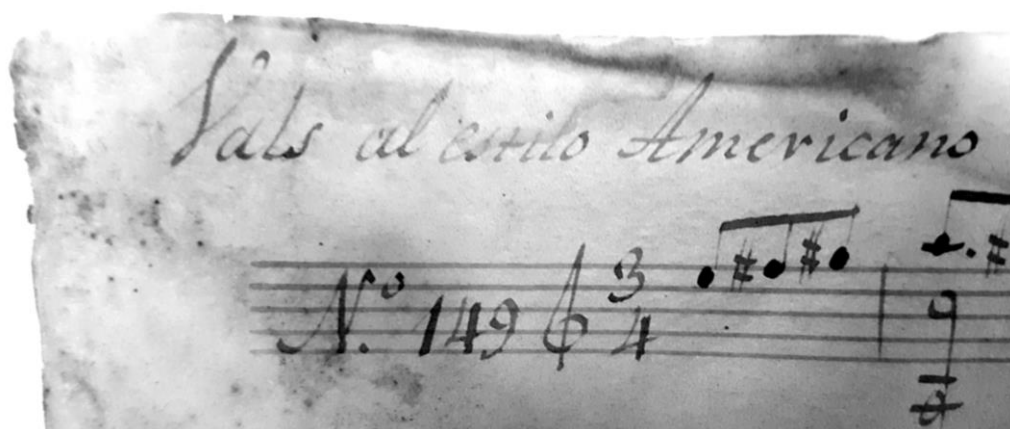 Vals al estilo Americano
N.º 149 3/4